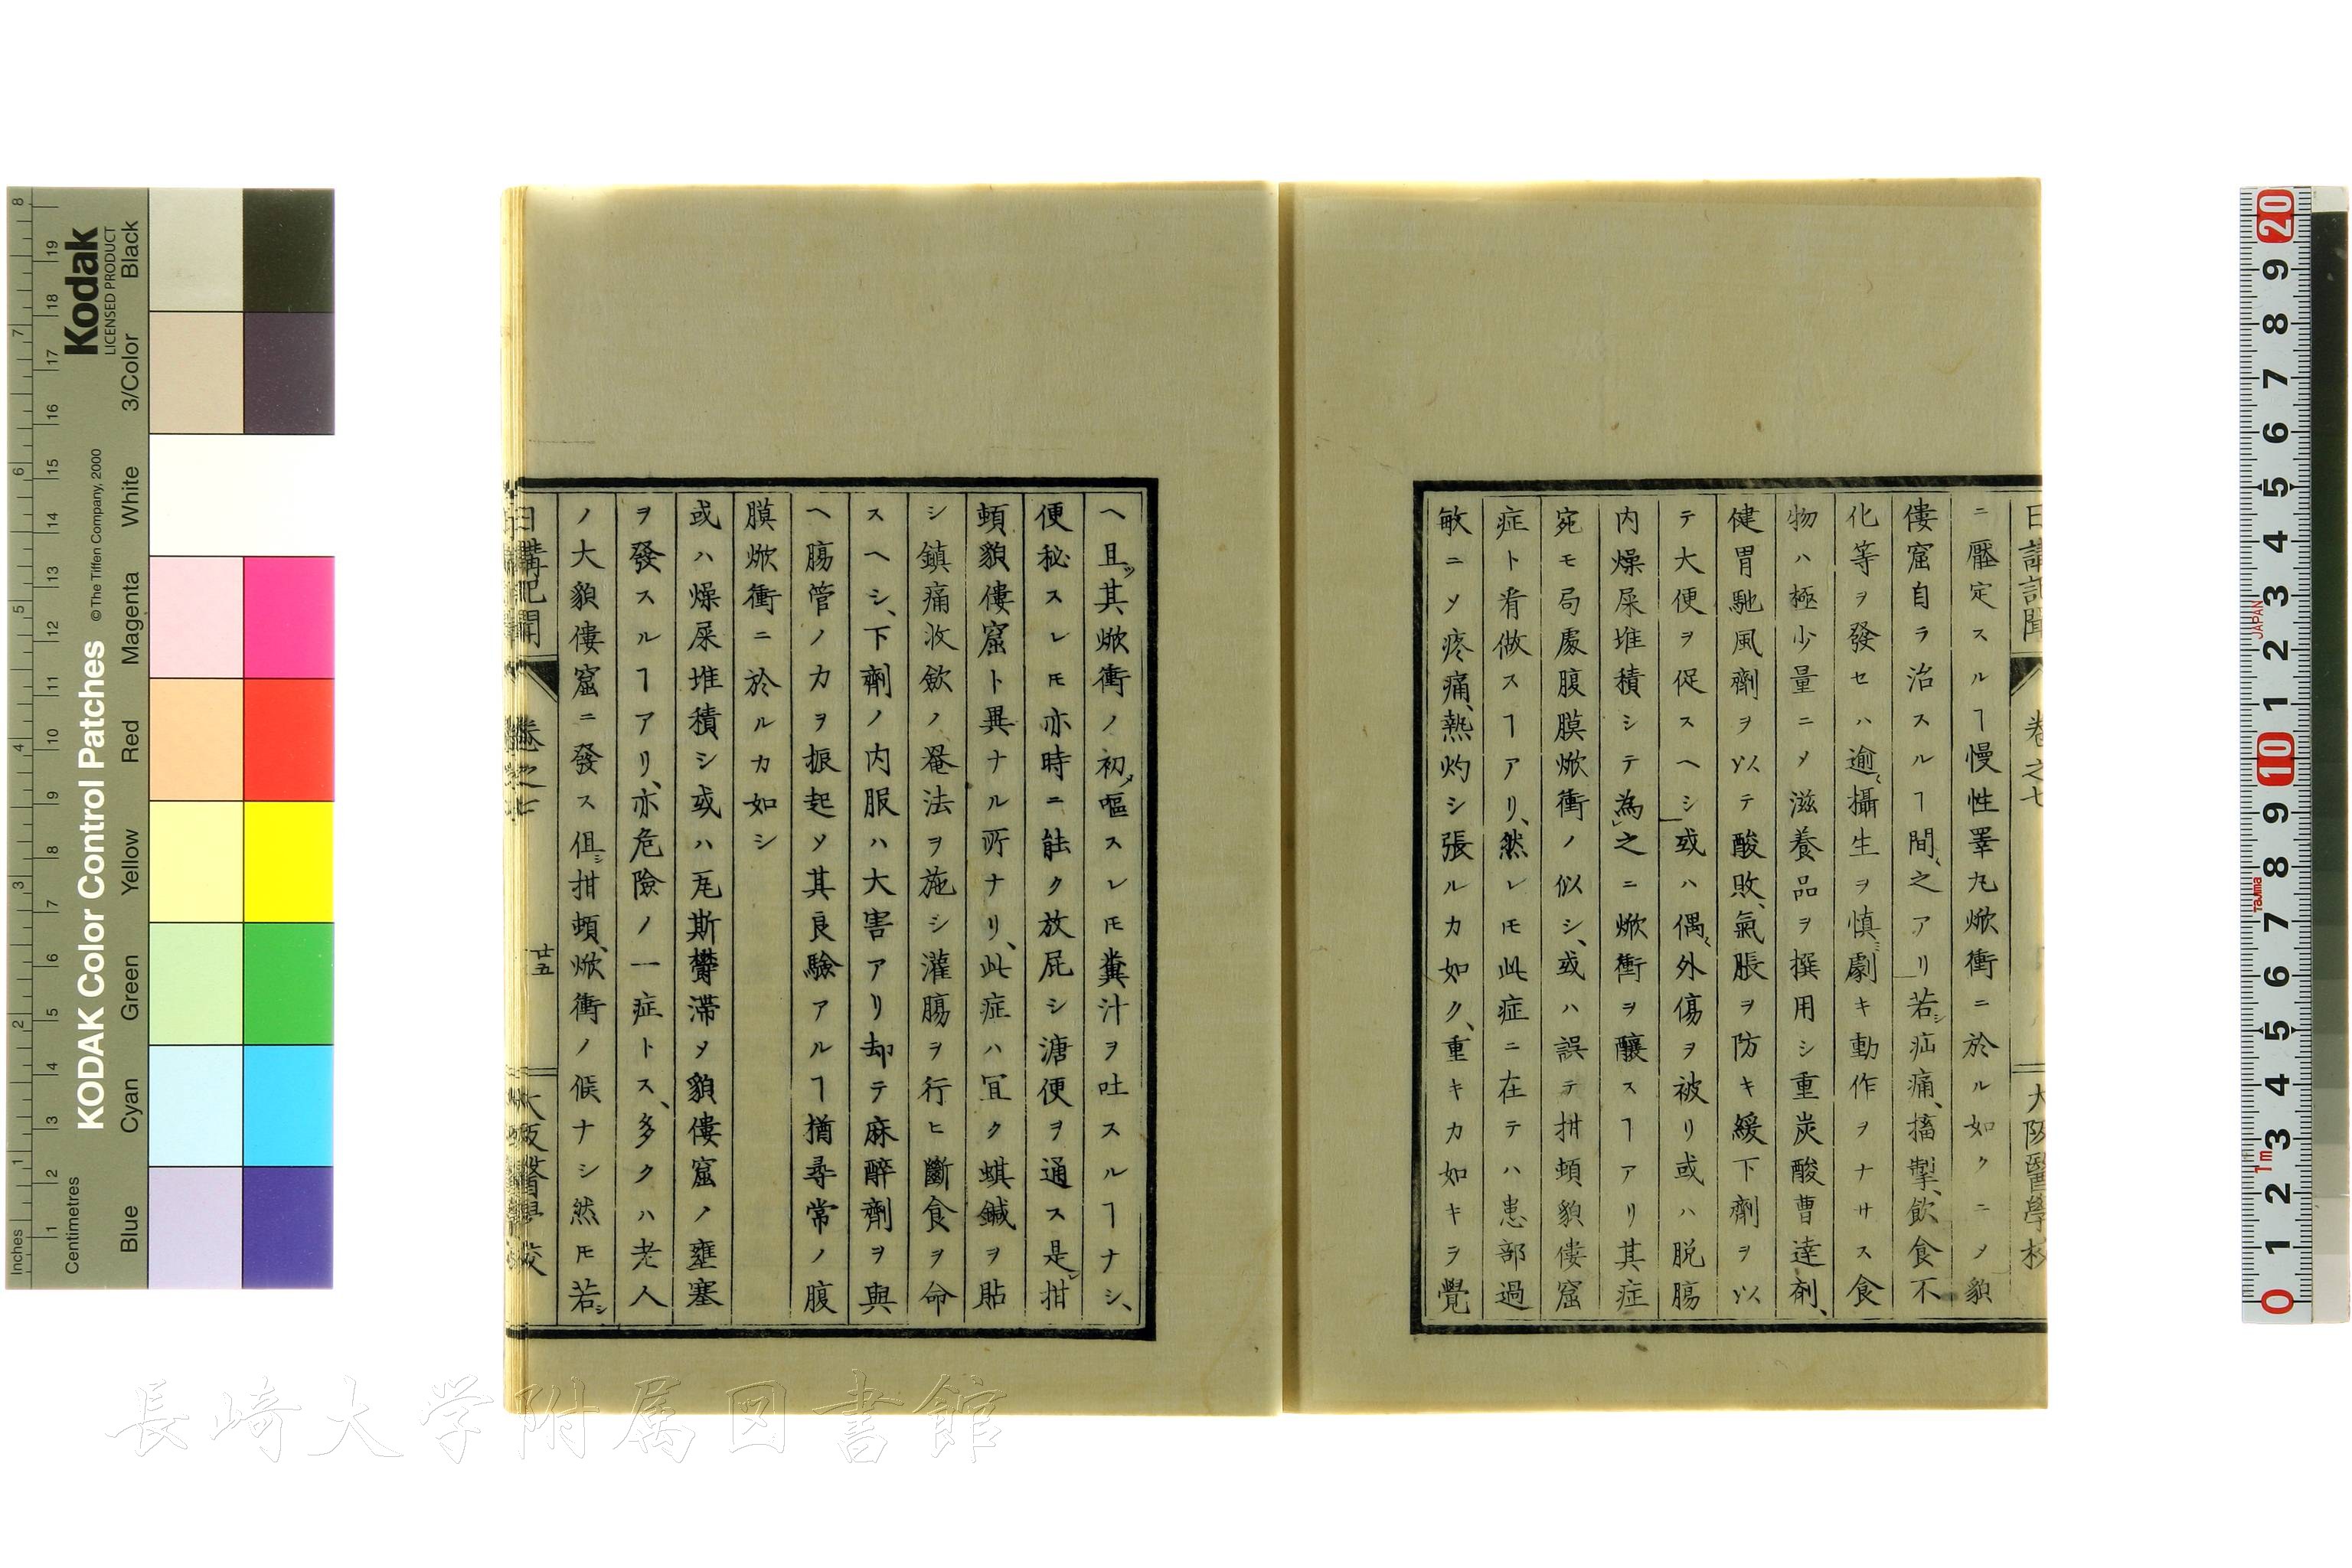 日講記聞 卷之七 大阪醫學校
ニ壓定スルヿ慢性睪丸焮衝ニ於ル如クニメ貌
僂窟自ラ治スルヿ間〻之アリ若シ疝痛、搐掣、飲食不
化等ヲ發セハ逾〻攝生ヲ慎ミ劇キ動作ヲナサス食
物ハ極少量ニメ滋養品ヲ撰用シ重炭酸曹達剤、
健胃馳風劑ヲ以テ酸敗、氣脹ヲ防キ緩下劑ヲ以
テ大便ヲ促スヘシ或ハ偶〻外傷ヲ被リ或ハ脱腸
内燥屎堆積シテ為之ニ焮衝ヲ釀スヿアリ其症
宛モ局處腹膜焮衝ノ似シ、或ハ誤テ拑頓貌僂窟
症ト看做スヿアリ、然レㇳモ此症ニ在テハ患部過
敏ニソ疼痛、熱灼シ張ルカ如ク、重キカ如キヲ覺
ヘ且ツ其焮衝ノ初メ嘔スレㇳモ糞汁ヲ吐スルヿナシ、
便秘スレㇳモ亦時ニ能ク放屁シ溏便ヲ通ス是レ拑
頓貌僂窟ト異ナル所ナリ、此症ハ宜ク蜞鍼ヲ貼
シ鎮痛收斂ノ罨法ヲ施シ灌腸ヲ行ヒ斷食ヲ命
スヘシ、下劑ノ内服ハ大害アリ却テ麻醉劑ヲ與
ヘ腸管ノ力ヲ振起ソ其良驗アルヿ猶尋常ノ腹
膜焮衝ニ於ルカ如シ
或ハ燥屎堆積シ或ハ瓦斯欝滯メ貌僂窟ノ壅塞
ヲ發スルヿアリ、亦危險ノ一症トス、多クハ老人
ノ大貌僂窟ニ發ス但シ拑頓、焮衝ノ候ナシ然ㇳモ若シ
日講記聞 卷之七 廿五 大阪醫學校
Kodak
LICENSED PRODUCT
KODAK Color Control Patches
©The Tiffen Company, 2000
Inches
Centimetres
Blue Cyan Green Yellow Red Magenta White 3/Color Black
JAPAN
Tajima
1m
長崎大学附属図書館